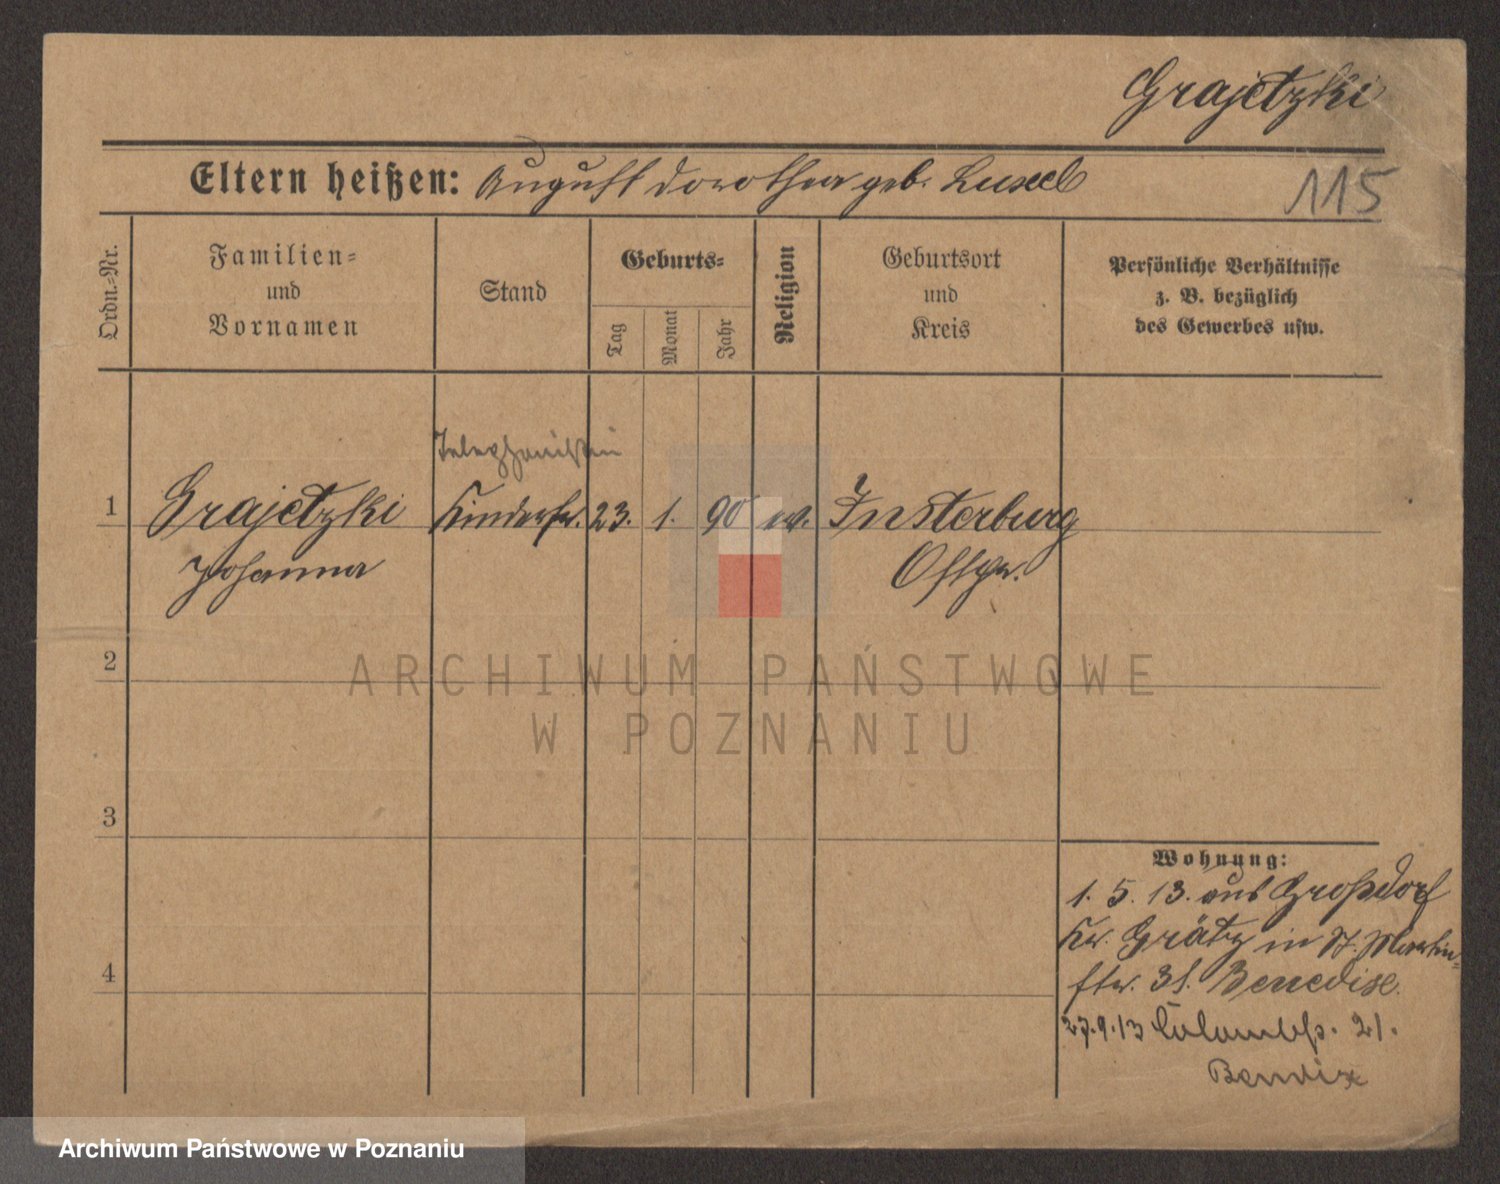 Grajetzki
Eltern heißen: August Dorothea geb.
115
Ordn.-Nr.
Familien-
und
Vornamen
Stand
Geburts-
Tag
Monat
Jahr
Religion
Geburtsort
und
Kreis
Persönliche Verhältnisse
z. B. bezüglich
des Gewerbes usw.
Telephonistin
1 Grajetzki Kinderfr. 23. 1. 90 ev. Insterburg
Johanna Ostpr.
2
ARCHIWUM PAŃSTWOWE
W POZNANIU
3
Wohnung:
1. 5. 13. aus Großdorf
Kr. Grätz in St. Martin-
4
str. 31.
27.9.13 21.
Archiwum Państwowe w Poznaniu